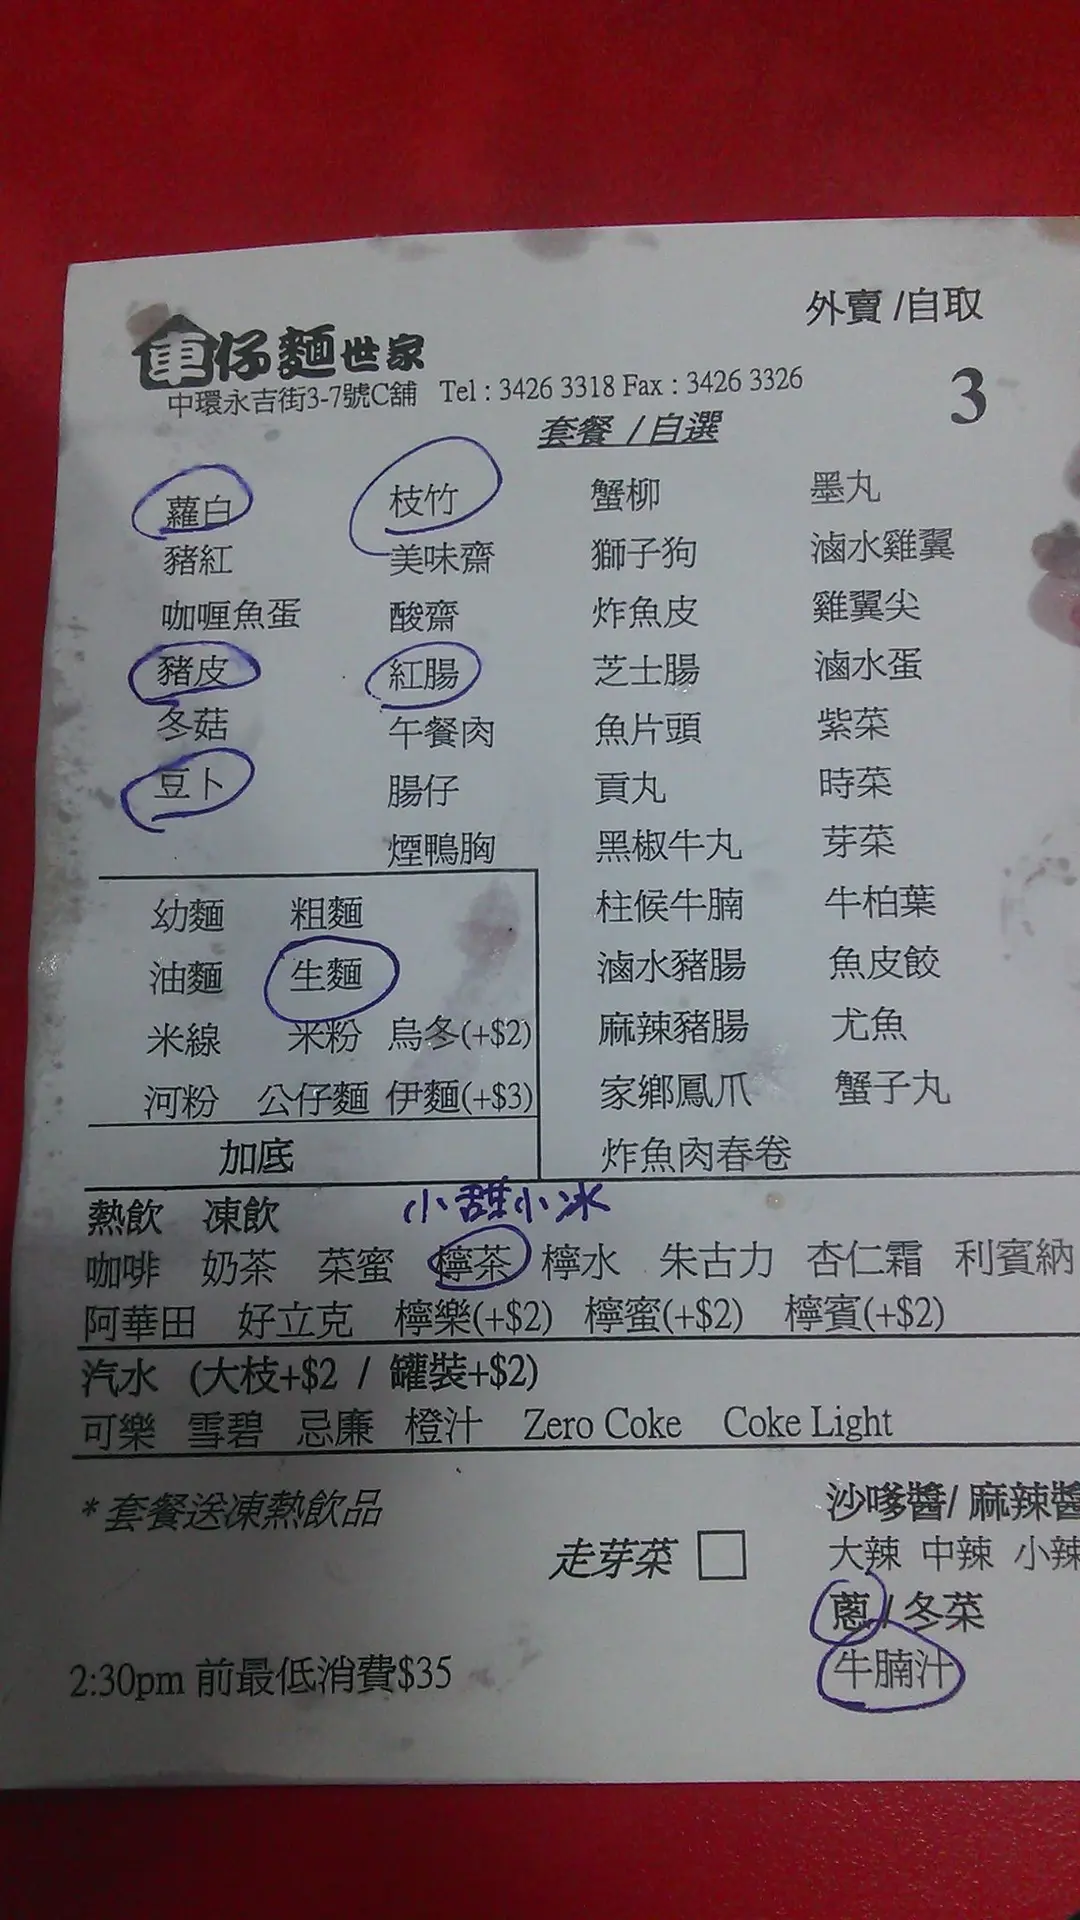 外賣 /自取
車仔麵世家
中環永吉街3-7號C舖 Tel : 3426 3318 Fax : 3426 3326
3
套餐 / 自選
蘿白 枝竹 蟹柳 墨丸
豬紅 美味齋 獅子狗 滷水雞翼
咖喱魚蛋 酸齋 炸魚皮 雞翼尖
豬皮 紅腸 芝士腸 滷水蛋
冬菇 午餐肉 魚片頭 紫菜
豆卜 腸仔 貢丸 時菜
煙鴨胸 黑椒牛丸 芽菜
幼麵 粗麵 柱候牛腩 牛柏葉
油麵 生麵 滷水豬腸 魚皮餃
米線 米粉 烏冬(+$2) 麻辣豬腸 尤魚
河粉 公仔麵 伊麵(+$3) 家鄉鳳爪 蟹子丸
加底 炸魚肉春卷
熱飲 凍飲 小甜小冰
咖啡 奶茶 菜蜜 檸茶 檸水 朱古力 杏仁霜 利賓納
阿華田 好立克 檸樂(+$2) 檸蜜(+$2) 檸賓(+$2)
汽水 (大枝+$2 / 罐裝+$2)
可樂 雪碧 忌廉 橙汁 Zero Coke Coke Light
* 套餐送凍熱飲品
沙嗲醬/ 麻辣醬
走芽菜
大辣 中辣 小辣
蔥 / 冬菜
牛腩汁
2:30pm 前最低消費$35